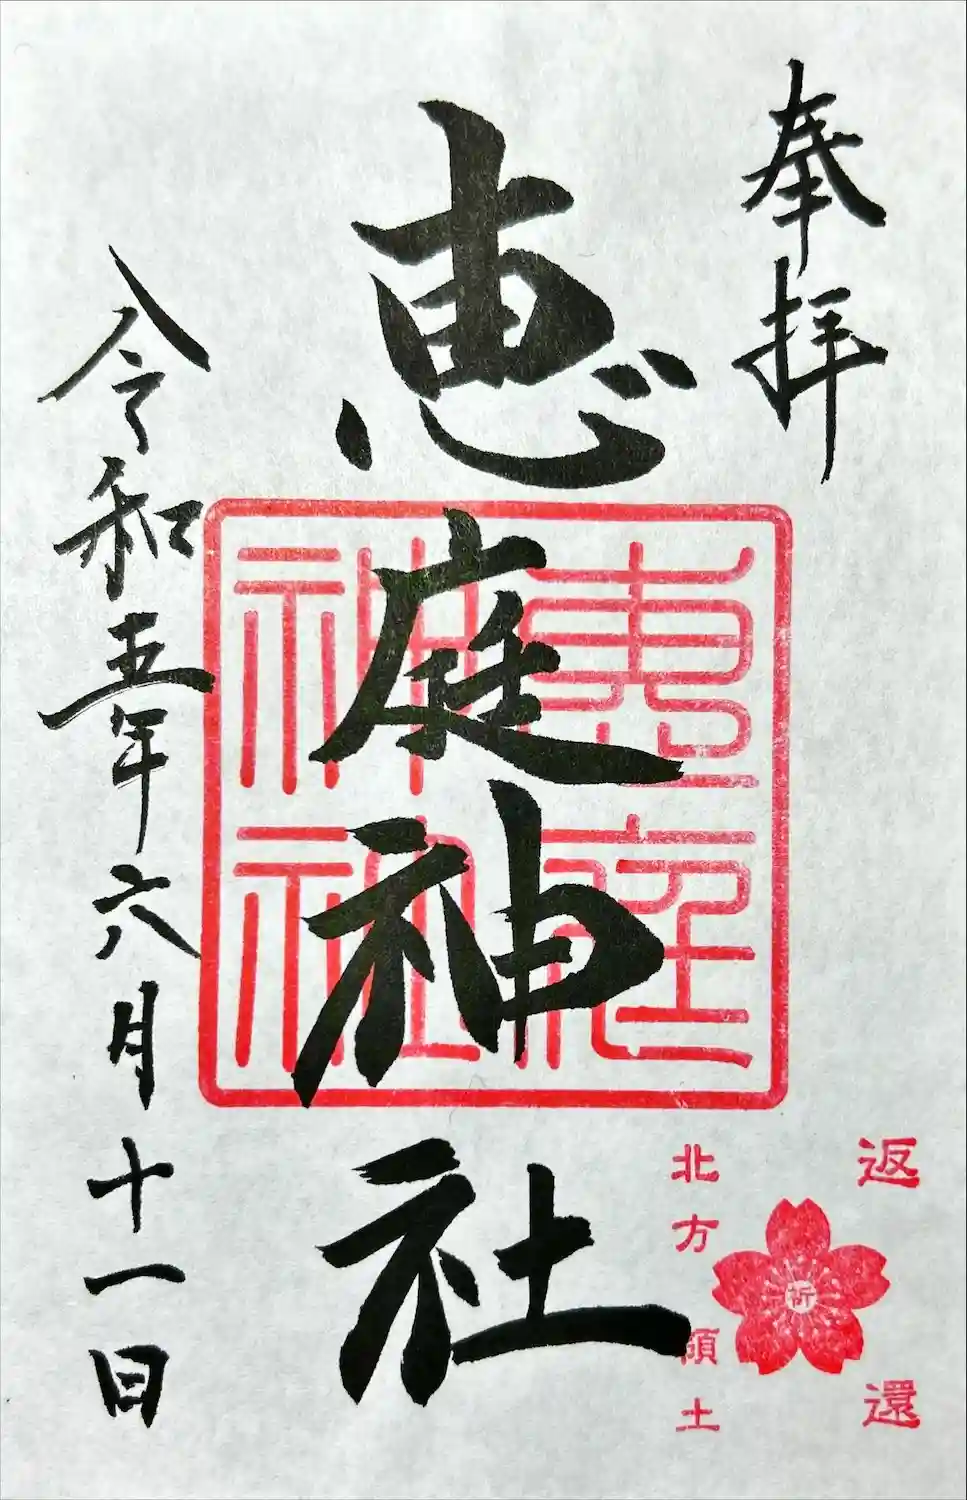 奉拝
恵庭神社
令和五年六月十一日
惠庭
神社
返還
祈
北方領土